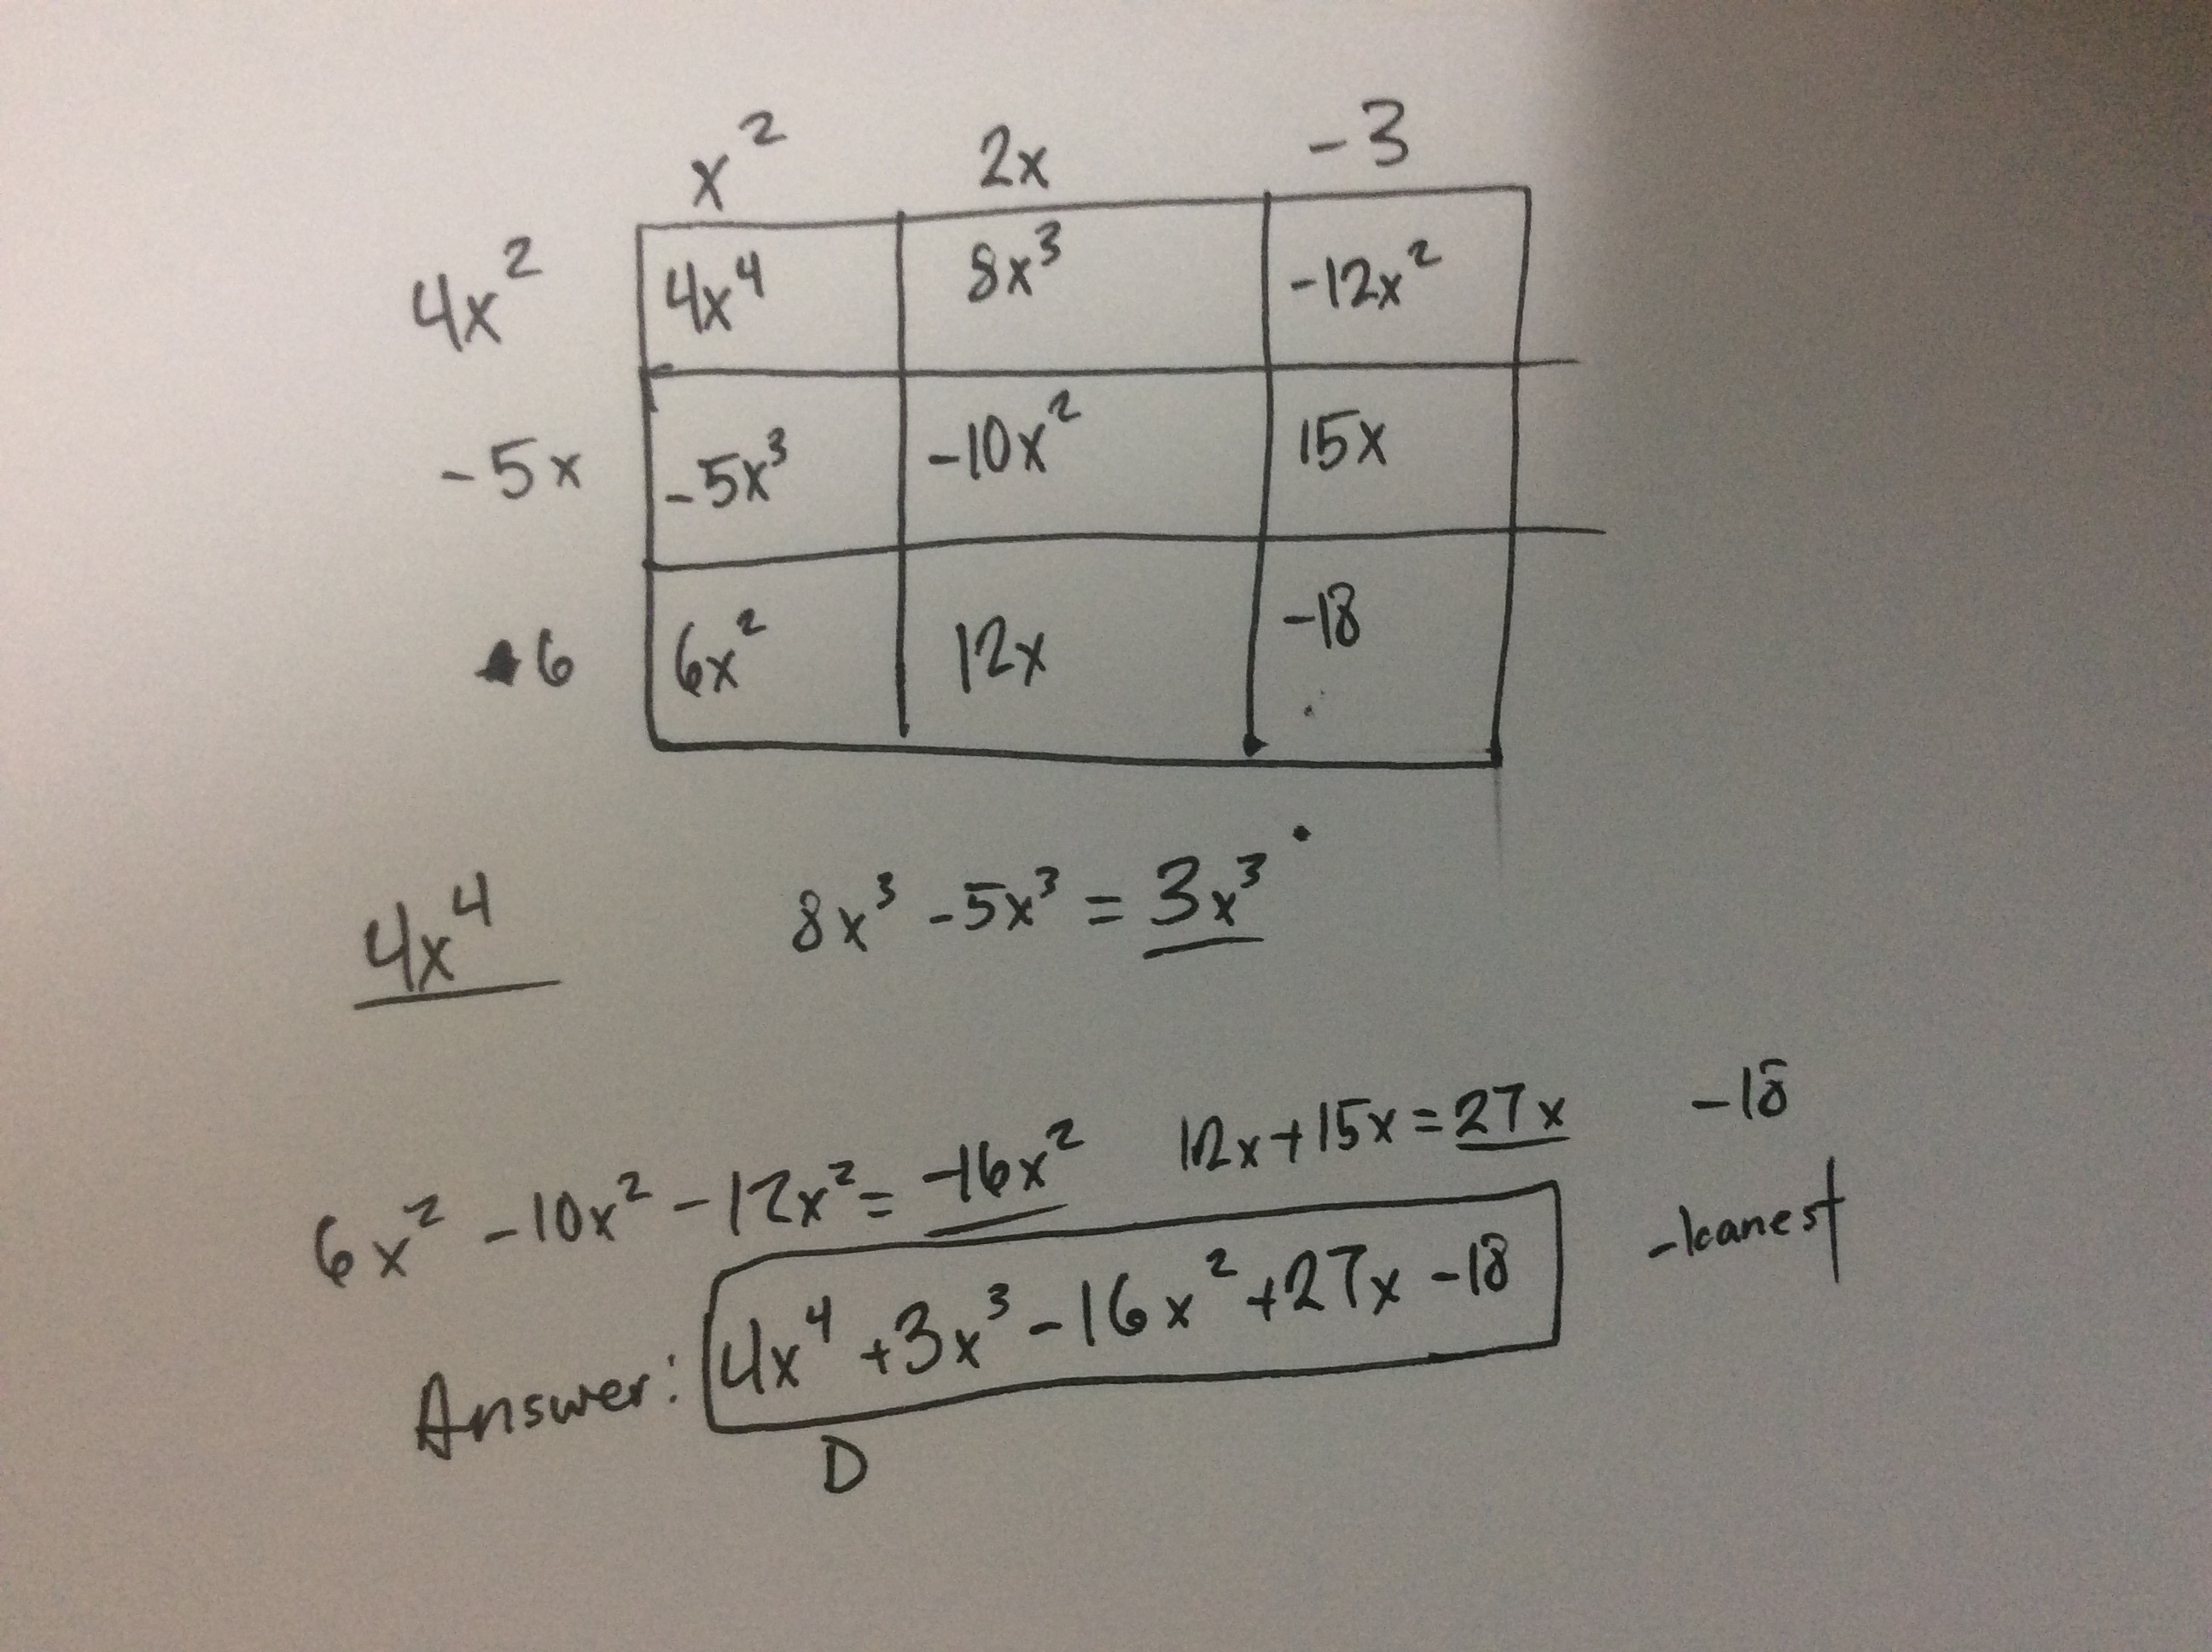 x² 2x -3
4x² 4x⁴ 8x³ -12x²
-5x -5x³ -10x² 15x
6 6x² 12x -18
4x⁴ 8x³ -5x³ = 3x³
6x² -10x² -12x² = -16x² 12x+15x=27x -18
-kanest
Answer: 4x⁴ +3x³ -16x² +27x -18
D